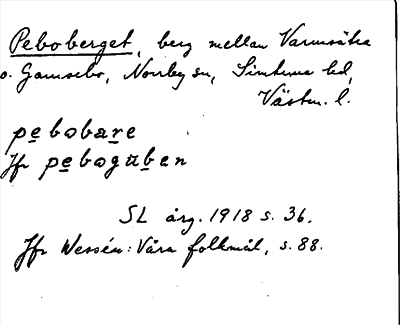 Peboberget, berg mellan Varmsätra
o. Gamsebo, Norrby sn, Simtuna hd,
Västm. l.
pebobare
Jfr peboguben
SL årg. 1918 s. 36.
Jfr Wessén: Våra folkmål, s. 88.